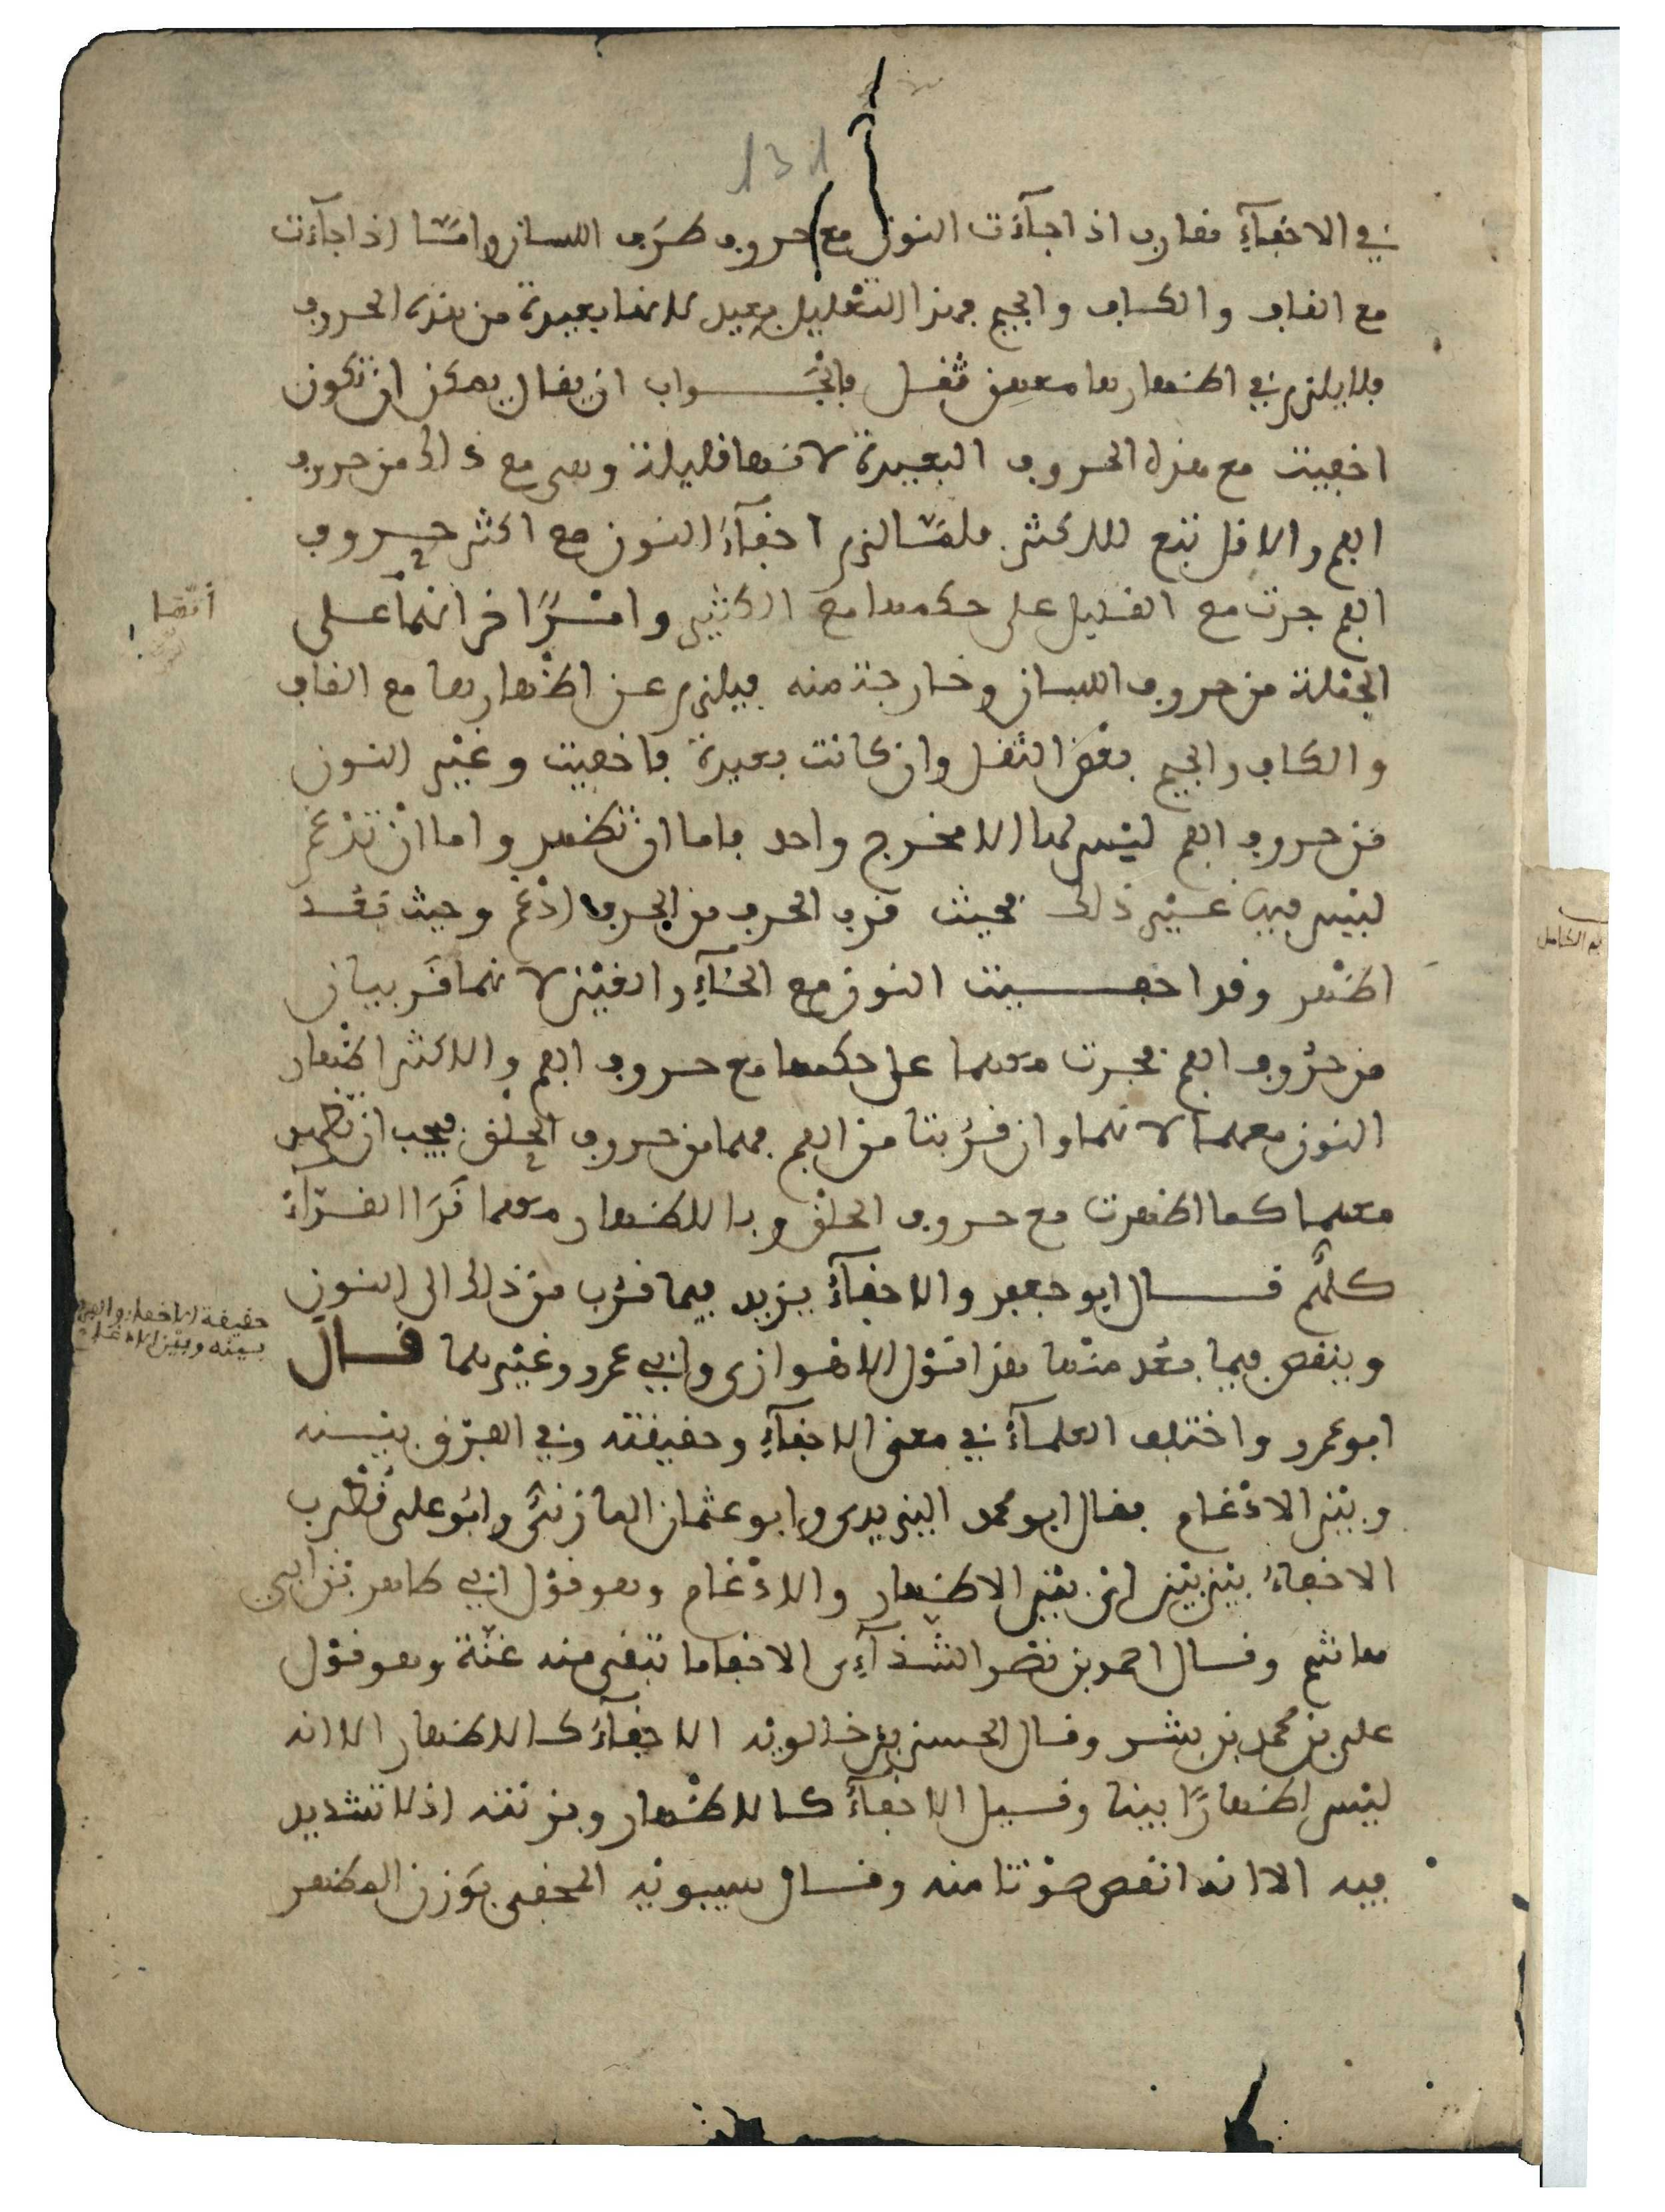 131
في الاخفآءِ مقارب اذا جآءت النون مع حروف طرَف اللسان وامّا اذا جآءت
مع القاف والكاف والجيم فهذا التعليل بعيد لانها بعيدة من هذه الحروف
فلا يلزم في اظهارها معهن ثقل فالجواب ان يقال يمكن ان تكون
اخفيت مع هذه الحروف البعيدة لانها قليلة وهي مع ذالك من حروف
الفم والاقل تبع للاكثر فلمّا لزم اخفآءُ النون مع اكثر حروف
الفم جرت مع القليل على حكمها مع الكثير وامْرًا اخر انها على
أنّها
الجملة من حروف اللسان وخارجة منه فيلزم عن اظهارها مع القاف
والكاف والجيم بعْض الثقل وان كانت بعيدة فاخفيت وغيْر النون
من حروف الفم ليْس لها الا مخرج واحد فاما ان تظهر واما انْ تدْغم
ليْس فيها غيْر ذلك فحيث قرب الحرف من الحرف ادْغم وحيث بَعُد
اظهر وقد اخفيت النون مع الخآءِ والغيْن لانهما قَريبان
من حرُوف الفم فجرت معهما على حكمها مع حروف الفم والاكثر اظهار
النون معهما لانهما وان قرُبتا من الفم فهما من حروف الحلْق فيجب ان تظهر
معهما كما اظهرت مع حروف الحلْق وبالاظهار معهما قَرَا القرّآءُ
كلهُم قال ابو جعفر والاخفآءُ يزيد فيما قرُب من ذلك الى النون
حقيقة الاخفاء والفرق
بينه وبين الادغام
وينقص فيما بعُد منْها هذا قوْل الاهْوازي وابي عمرو وغيْرهما قال
ابو عمرو واختلف العلمآءُ في معنى الاخفآءِ وحقيقته وفي الفرْق بيْنه
وبيْن الادْغام فقال ابو محمد اليزيدي وابو عثمان المازنيُّ وابُو علي قُطْرب
الاخفاءُ بيْن بيْن ايْ بيْن الاظهار والادْغام وهو قوْل ابي طاهر بْن ابي
هاشم وقال احمد بن نصْر الشّذآءِي الاخفا ما تبْقى معه غنّة وهو قوْل
علي بن محمد بن بشر وقال الحسين بن خالويْه الاخفآءُ كالاظهار الا انه
ليْس اظهارًا بينا وقيل الاخفآءُ كالاظهار وبزنته اذ لا تشْديد
فيه الا انه انقص صوْتا منه وقال سيبويْه المخفى بوَزن المظهر